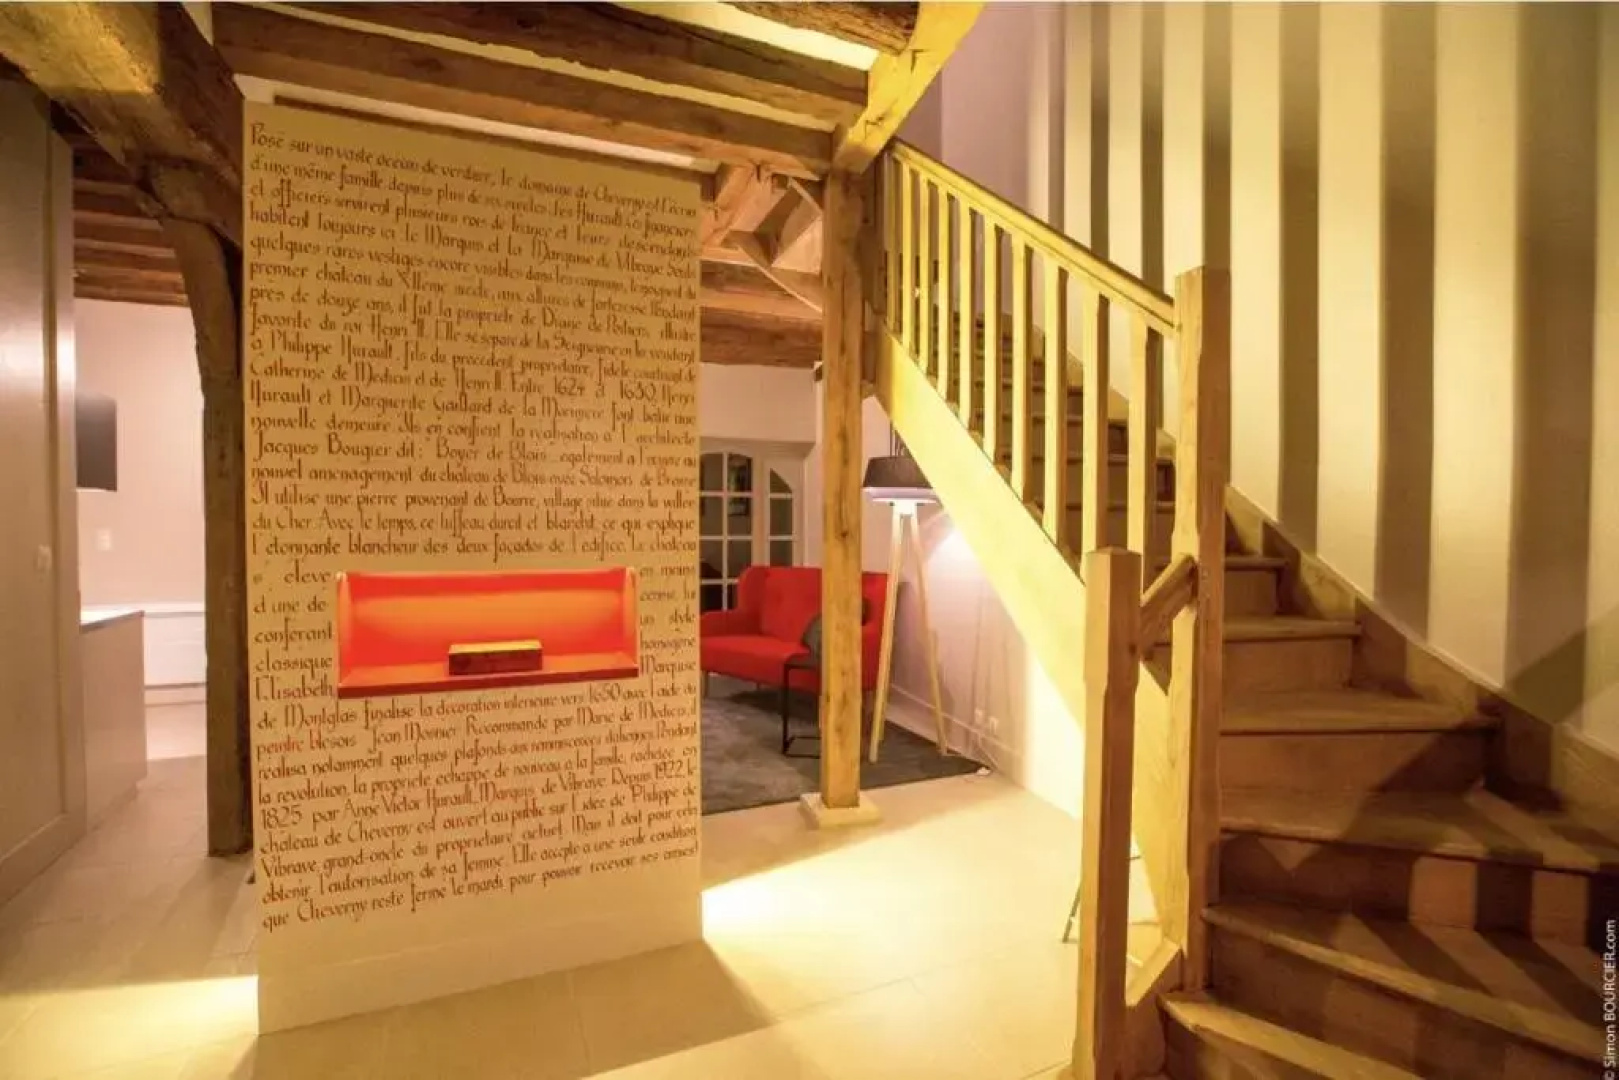 Posé sur un vaste océan de verdure, le domaine de Cheverny est l'écrin
d'une même famille depuis plus de six siècles : les Hurault. Ces financiers
et officiers servirent plusieurs rois de france et leurs descendants
habitent toujours ici le Marquis et la Marquise de Vibraye Seuls
quelques rares vestiges encore visibles dans les communs, témoignent du
premier château du XVIeme siècle, aux allures de forteresse Pendant
près de douze ans, il fut la propriété de Diane de Poitiers, illustre
favorite du roi Henri II. Elle se sépare de la Seigneurie en la vendant
à Philippe Hurault, fils du précédent propriétaire, fidèle courtisan de
Catherine de Medicis et de Henri II. Entre 1624 à 1630, Henri
Hurault et Marguerite Gaillard de la Morinière font bâtir une
nouvelle demeure. Ils en confient la réalisation à l'architecte
Jacques Bougier dit : "Boyer de Blois" également à l'œuvre au
nouvel aménagement du château de Blois avec Salomon de Brosse
Il utilise une pierre provenant de Bourré, village situé dans la vallée
du Cher. Avec le temps, ce tuffeau durcit et blanchit ce qui explique
l'étonnante blancheur des deux façades de l'édifice. Le château
s'élève en moins
d'une dé cennie, lui
conférant un style
classique homogène
Elisabeth, Marquise
de Montglas finalise la décoration intérieure vers 1650 avec l'aide du
peintre blésois Jean Monier Recommandé par Marie de Medicis, il
réalisa notamment quelques plafonds aux réminiscences italiennes. Pendant
la révolution, la propriété échappe de nouveau à la famille, rachetée en
1825 par Anne Victor Hurault, Marquis de Vibraye. Depuis 1922, le
château de Cheverny est ouvert au public sur l'idée de Philippe de
Vibraye, grand-oncle du propriétaire actuel. Mais il doit pour cela
obtenir l'autorisation de sa femme. Elle accepte à une seule condition
que Cheverny reste fermé le mardi pour pouvoir recevoir ses amies!
© Simon BOURCIER.com